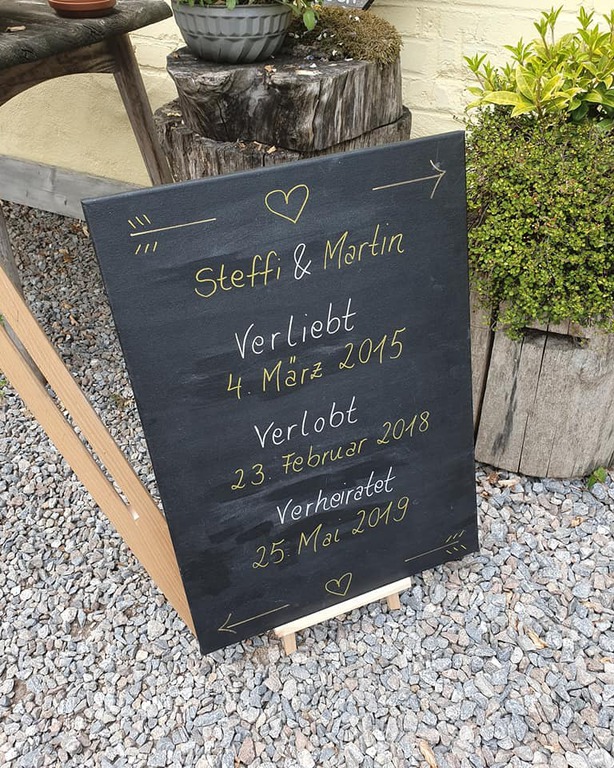 Steffi & Martin
Verliebt
4. März 2015
Verlobt
23. Februar 2018
Verheiratet
25. Mai 2019